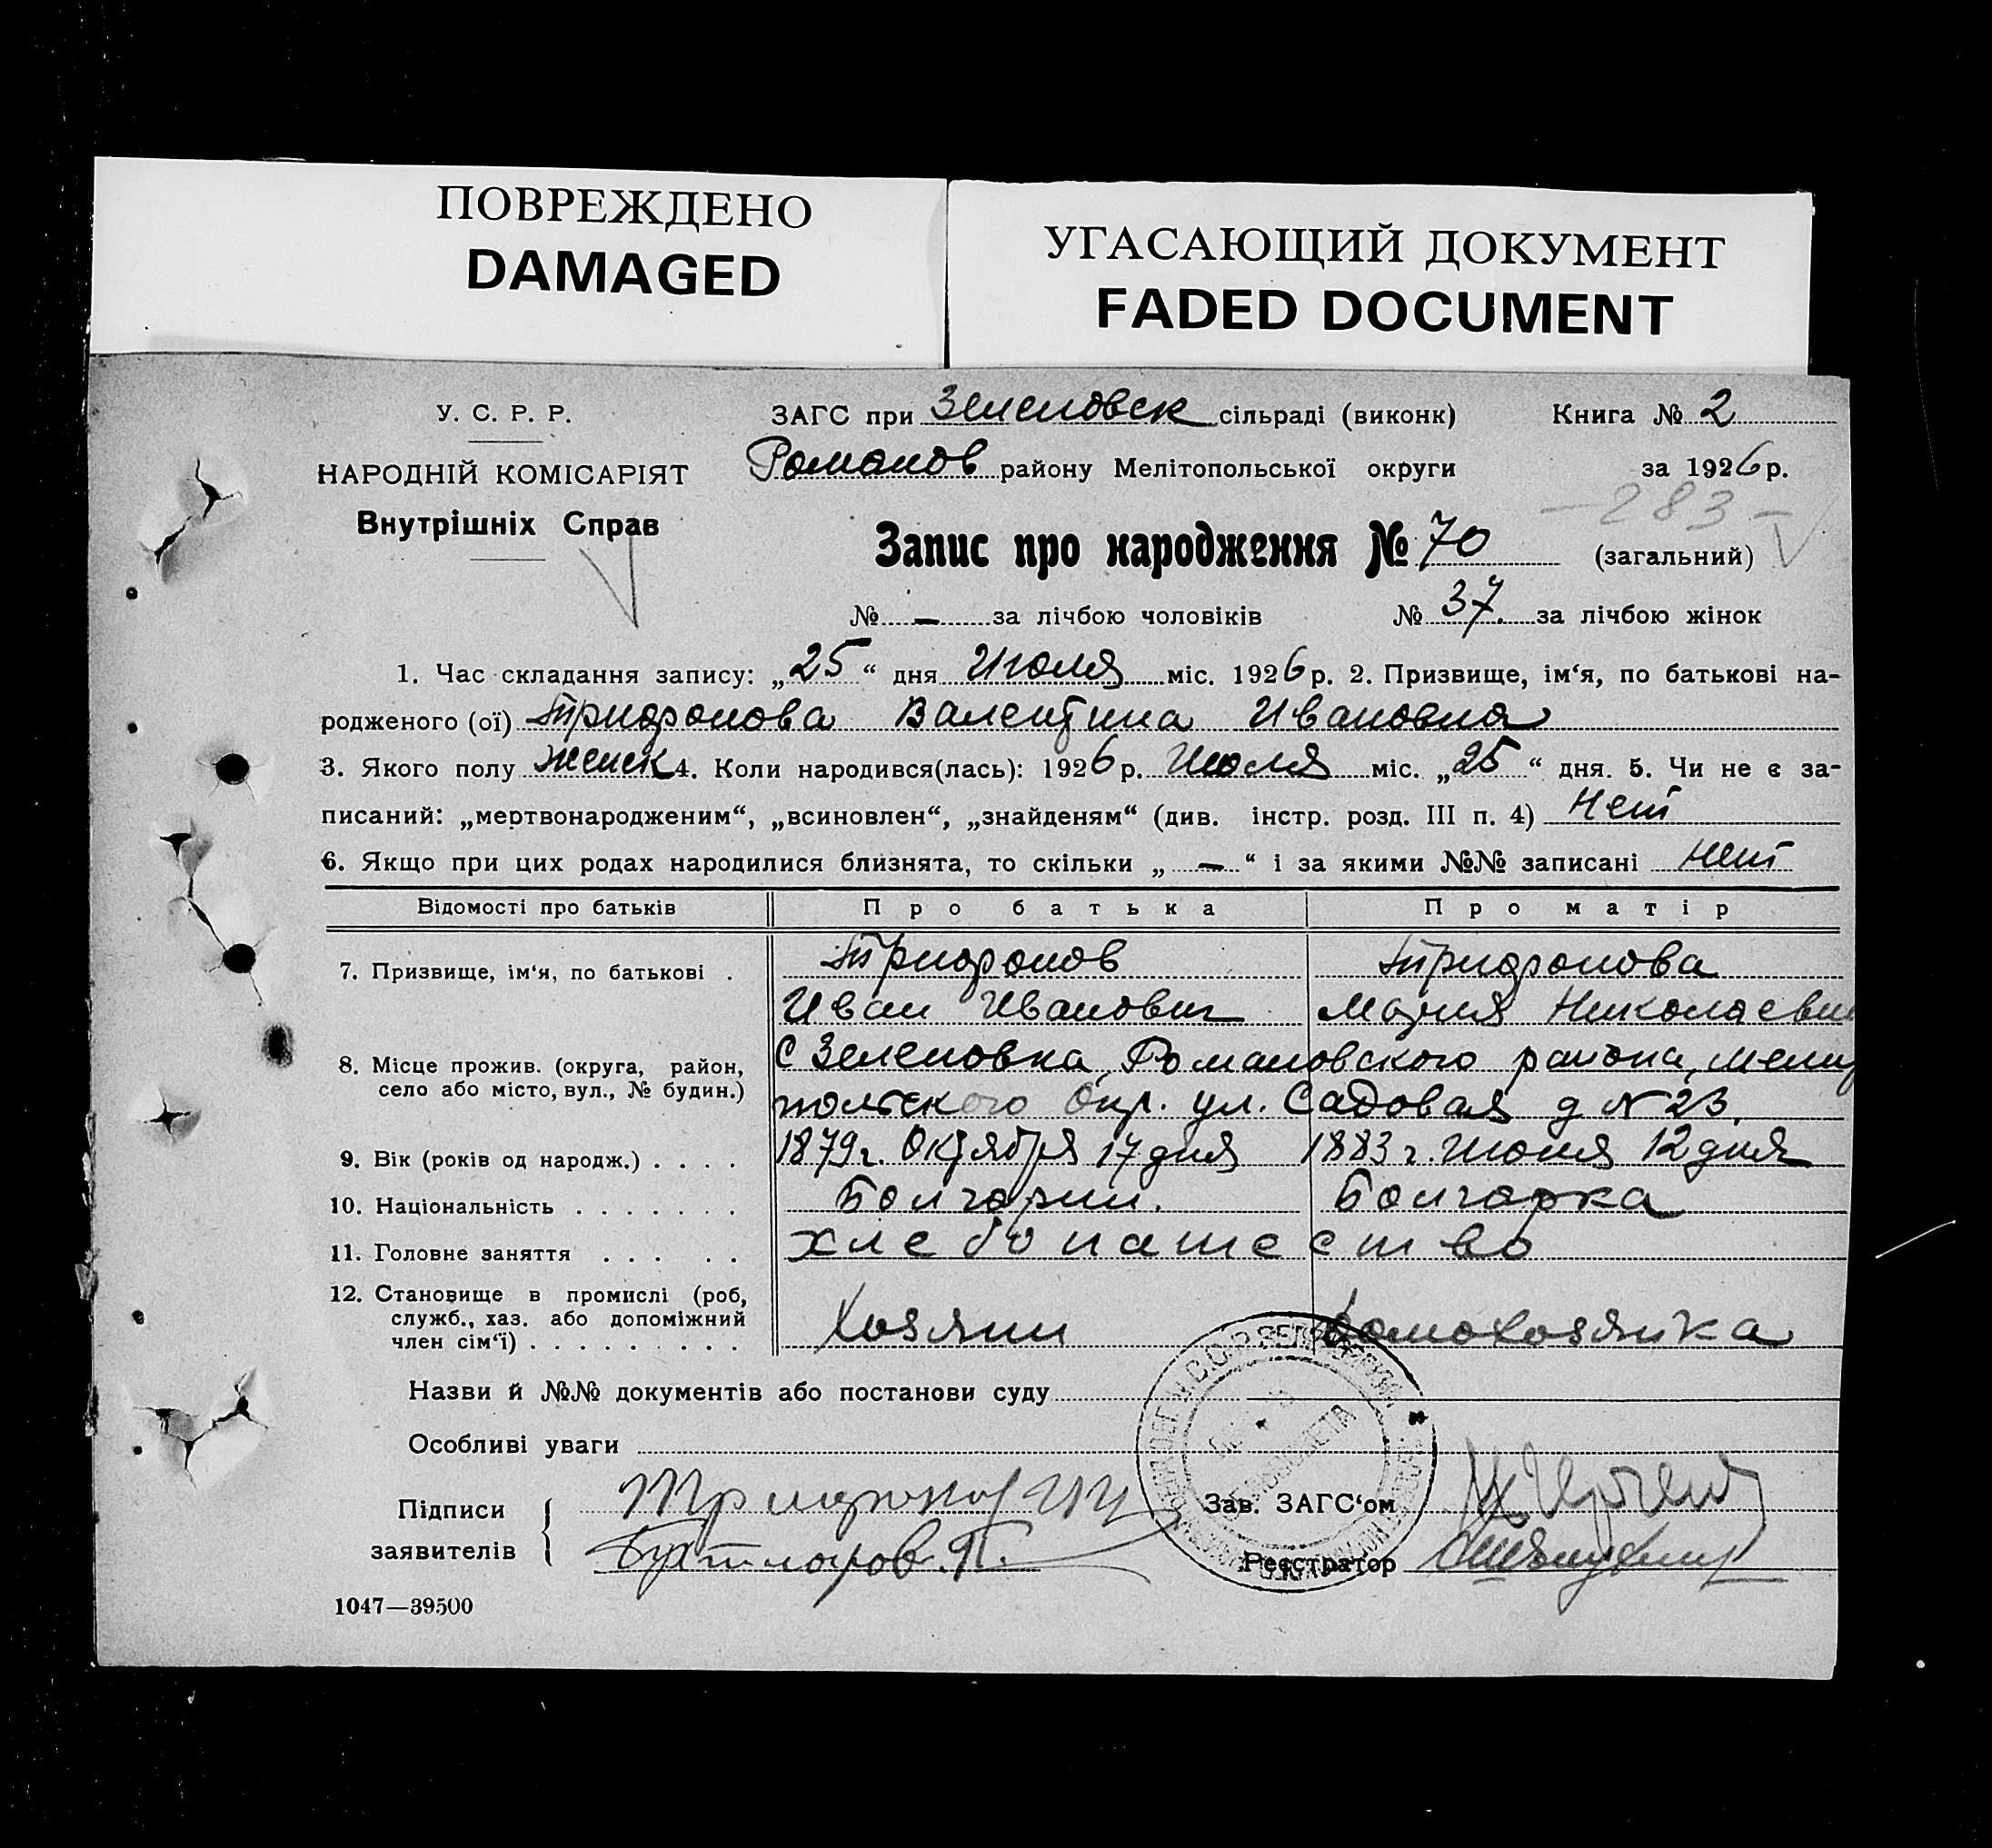 ПОВРЕЖДЕНО
DAMAGED
УГАСАЮЩИЙ ДОКУМЕНТ
FADED DOCUMENT
У. С. Р. Р.
НАРОДНІЙ КОМІСАРІЯТ
Внутрішніх Справ
ЗАГС при Зеленовск сільраді (виконк) Книга № 2
Романов району Мелітопольської округи за 1926 р.
- 283 -
Запис про народження № 70 (загальний)
№ - за лічбою чоловіків № 37. за лічбою жінок
1. Час складання запису: „25“ дня Июля міс. 1926 р. 2. Призвище, ім‘я, по батькові на-
родженого (ої) Трифонова Валентина Ивановна
3. Якого полу женск 4. Коли народився(лась): 1926 р. Июля міс. „25“ дня. 5. Чи не є за-
писаний: „мертвонародженим“, „всиновлен“, „знайденям“ (див. інстр. розд. III п. 4) Нет
6. Якщо при цих родах народилися близнята, то скільки „-“ і за якими №№ записані нет
Відомості про батьків Про батька Про матір
7. Призвище, ім‘я, по батькові . Трифонов Трифонова
Иван Иванович Мария Николаевн
8. Місце прожив. (округа, район, село або місто, вул., № будин.) С Зеленовка, Романовского района, мели
польского Окр. ул. Садовая д N 23.
9. Вік (років од народж.) . . . . 1879 г. Октября 17 дня 1883 г. Июля 12 дня
10. Національність . . . . . . . Болгарин. Болгарка
11. Головне заняття . . . . . хлебопашество
12. Становище в промислі (роб, служб., хаз. або допоміжний член сім‘ї) . . . . . . . . . Хозяин домохозяйка
Назви й №№ документів або постанови суду
Особливі уваги
Підписи
заявителів
Трифонов ИИ
Зав. ЗАГС‘ом
Реєстратор
1047—39500